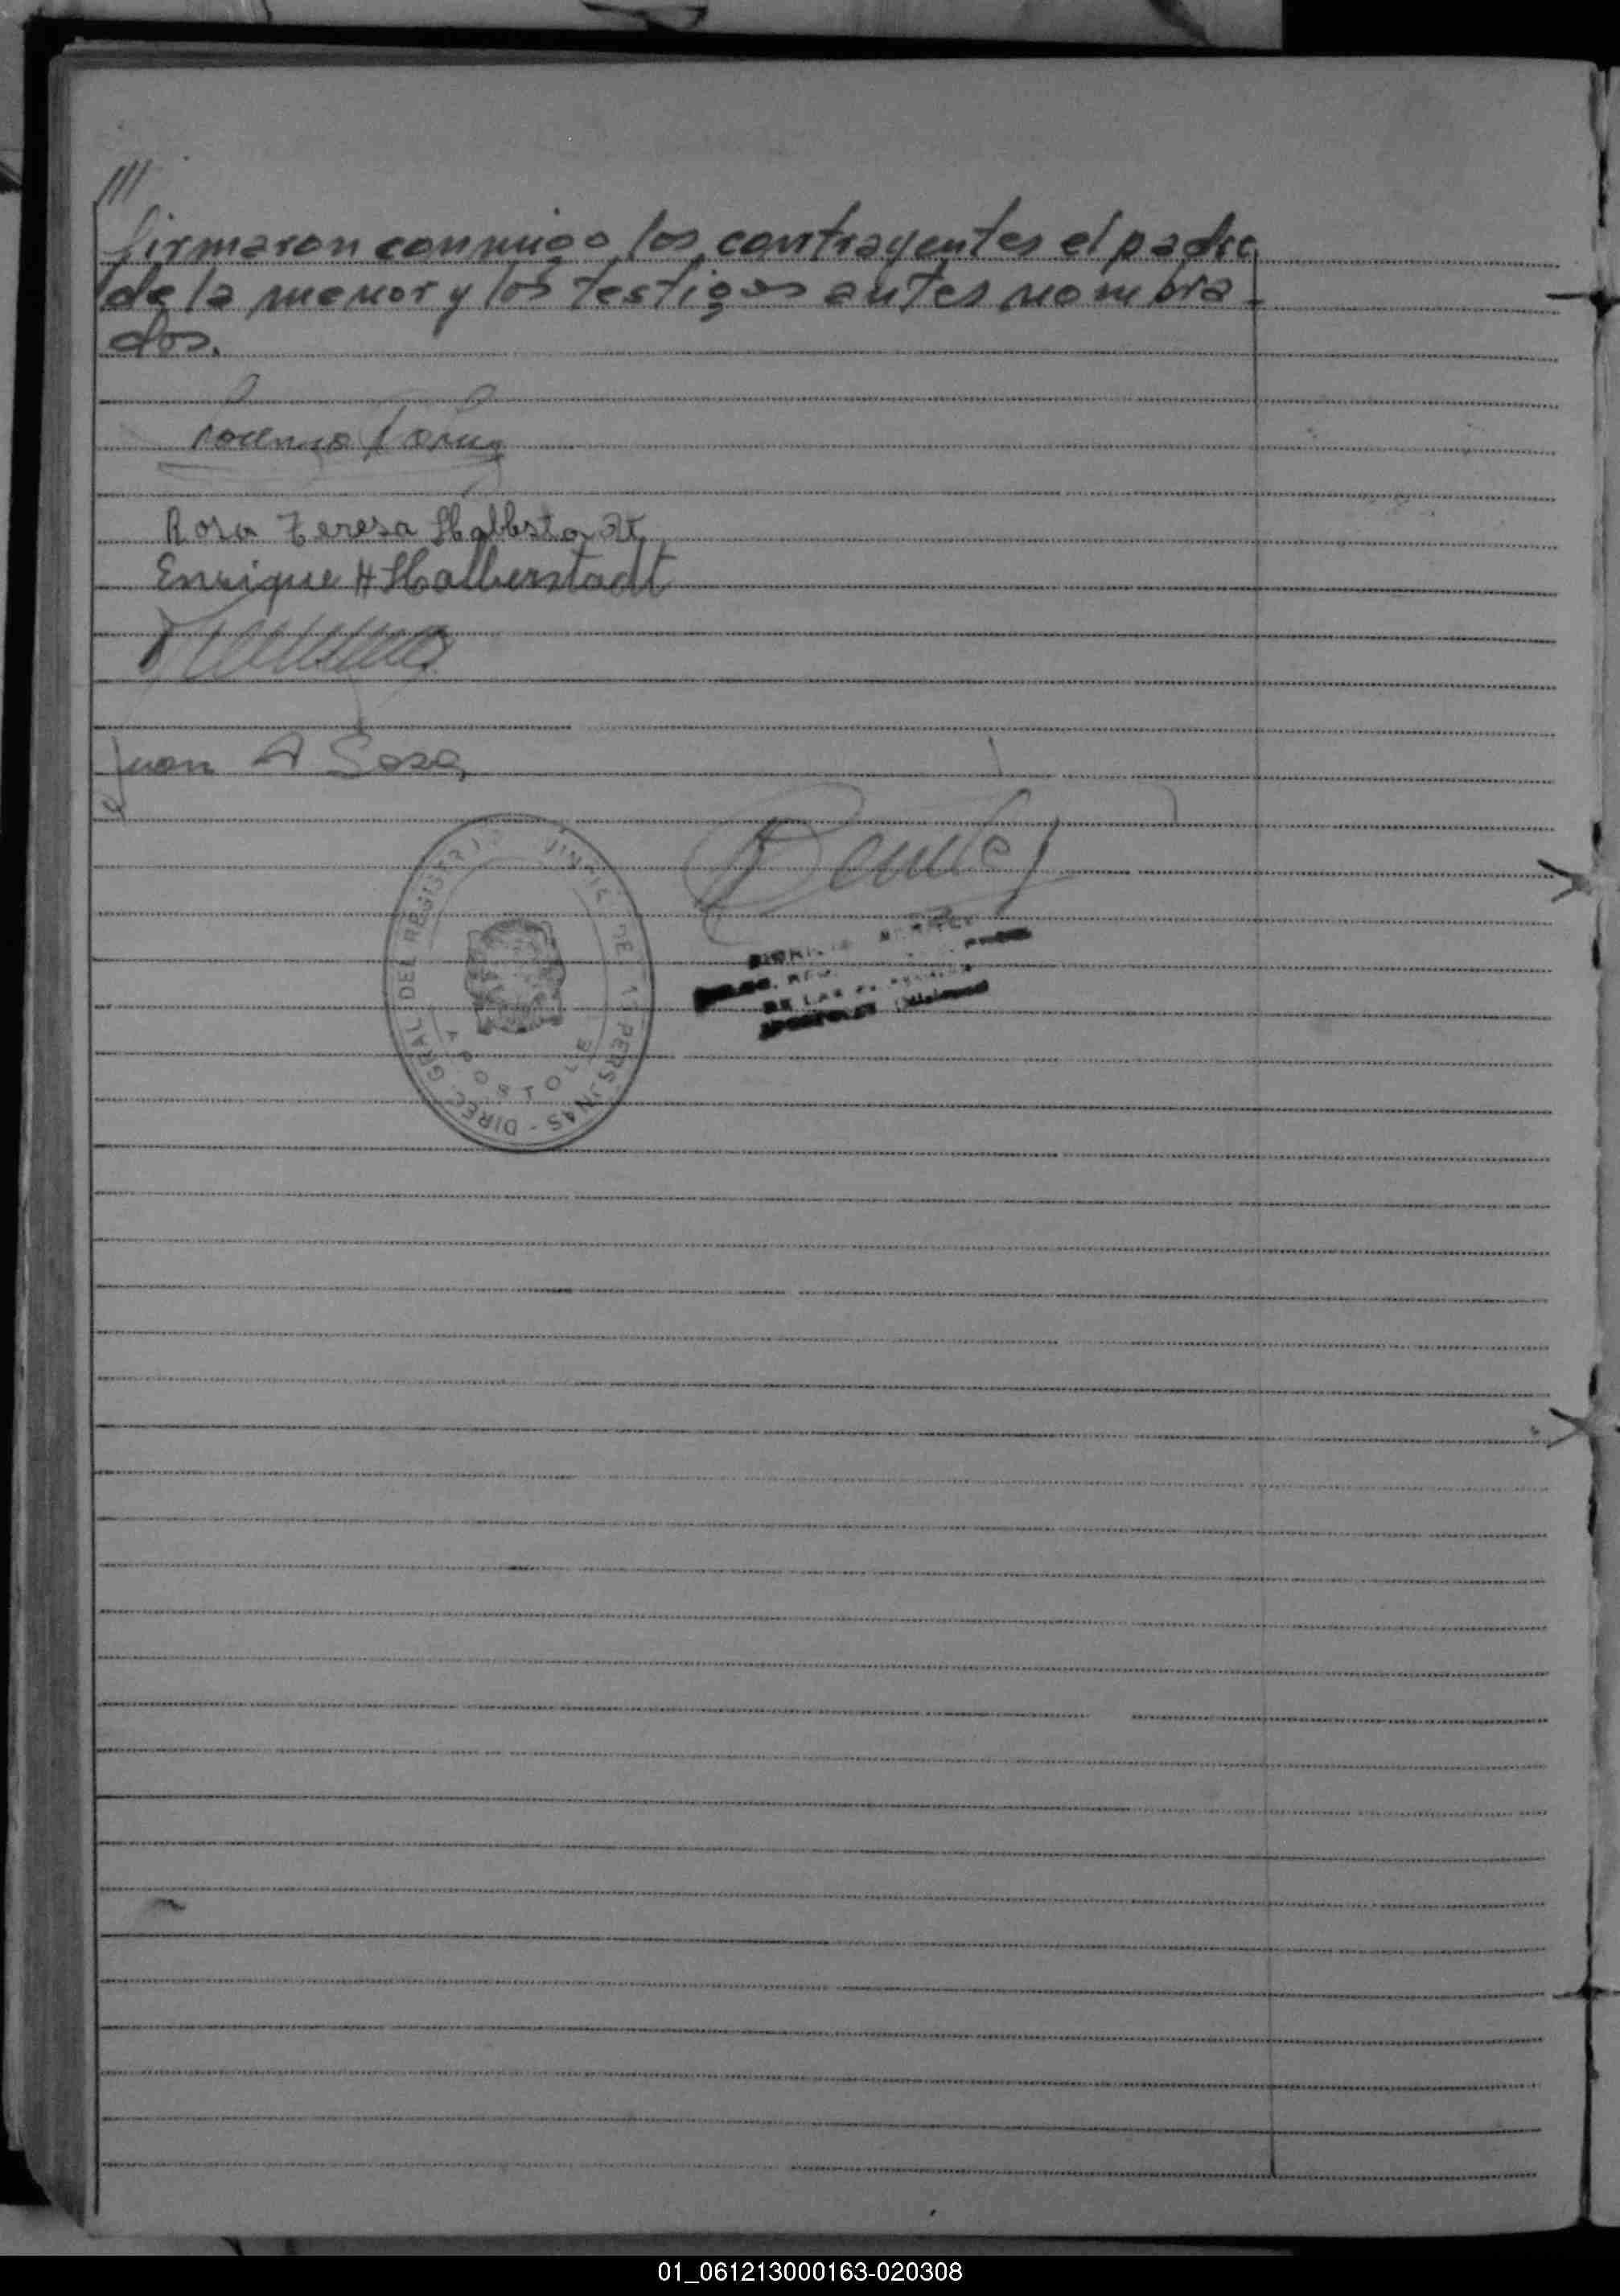 ///
firmaron conmigo los contrayentes el padre
de la menor y los testigos antes nombra-
dos.
Rosa Teresa Halbstadt
Enrique H Halberstadt
Juan A Sosa
DIREC. GRAL. DEL REGISTRO PROVINCIAL DE LAS PERSONAS -
APOSTOLES
DE LAS
(Misiones)
01_061213000163-020308